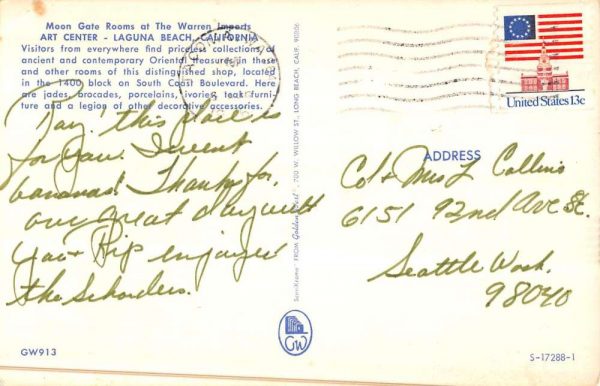 Moon Gate Rooms at The Warren Imports
ART CENTER - LAGUNA BEACH, CALIFORNIA
Visitors from everywhere find priceless collections of
ancient and contemporary Oriental treasures in these
and other rooms of this distinguished shop, located
in the 1400 block on South Coast Boulevard. Here
are jades, brocades, porcelains, ivories, teak furni-
ture and a legion of other decorative accessories.
Day! this place is
for you. I went
bananas! Thanks for
one great day with
you + Rip enjoyed
the Schorders.
GW913
Semi-Krome FROM Golden West 700 W. WILLOW ST., LONG BEACH, CALIF. 90806
GW
United States 13c
ADDRESS
Col + Mrs L Collins
6151 92nd Ave SE.
Seattle Wash.
98040
S-17288-1